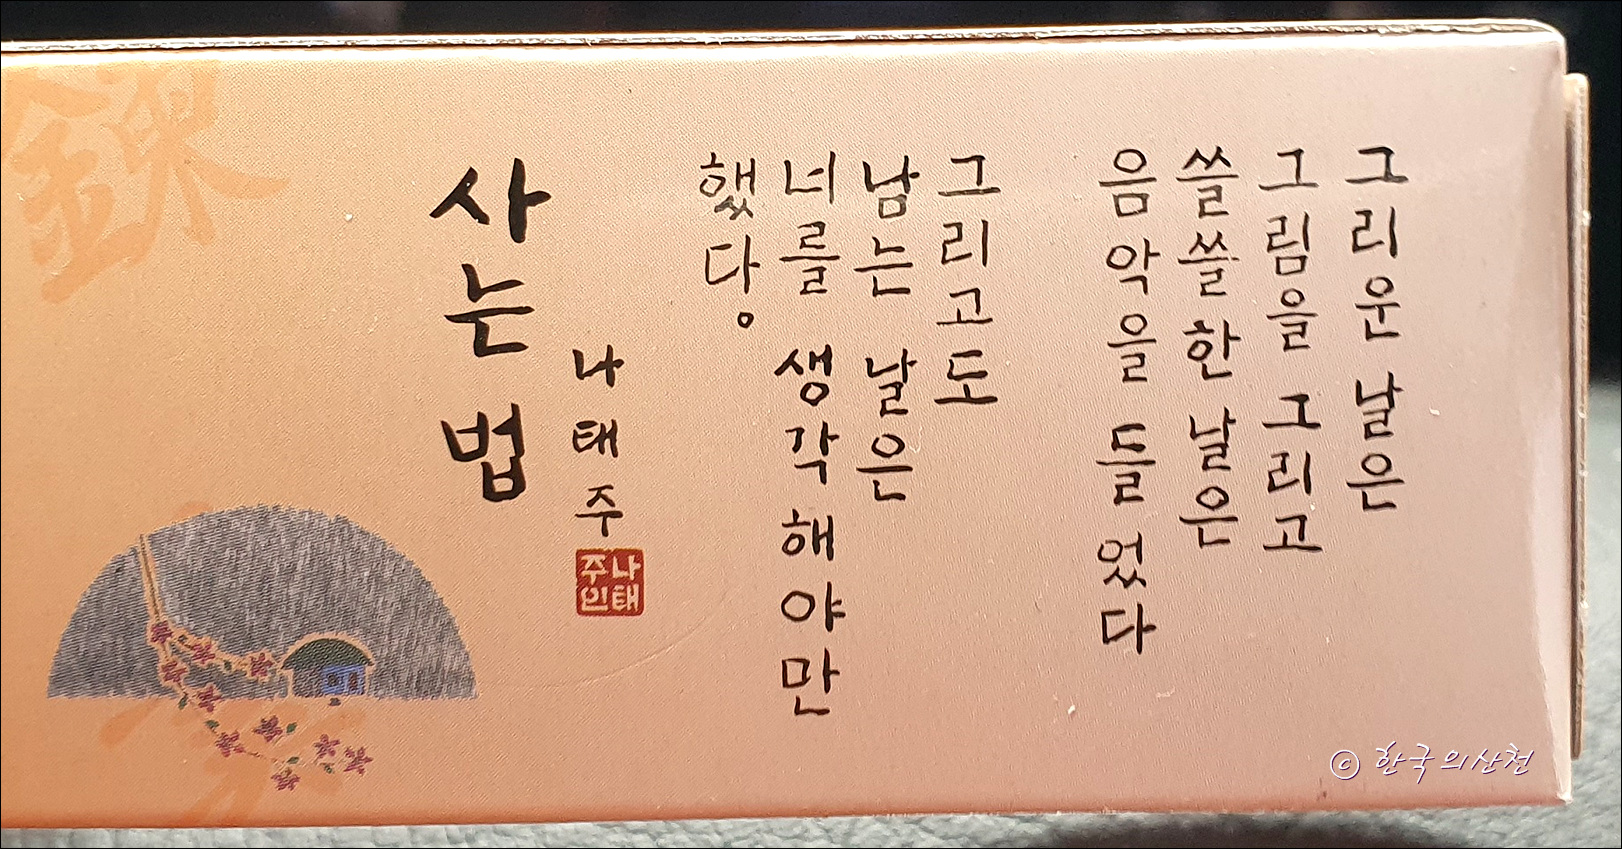 그리운 날은
그림을 그리고
쓸쓸한 날은
음악을 들었다
그리고도
남는 날은
너를 생각해야만
했다.
나태주
나태
주인
사는 법
© 한국의산천